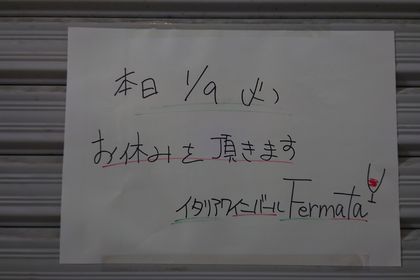 本日 1/9 (火)
お休みを頂きます
イタリアワインバール Fermata